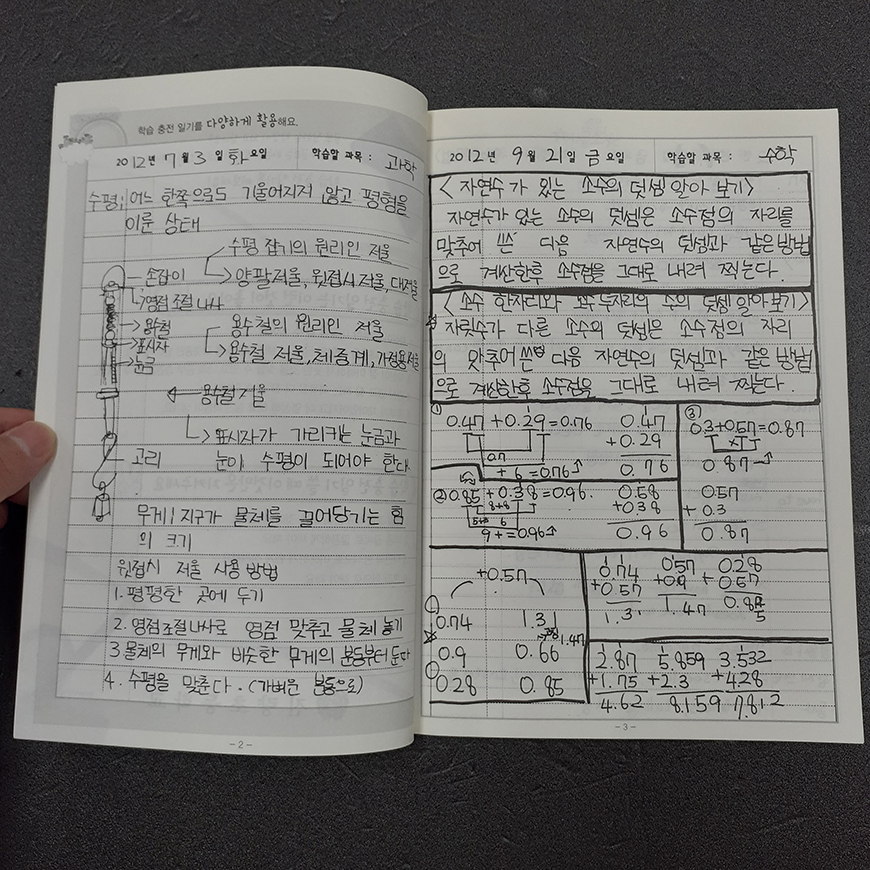 학습 충전 일기를 다양하게 활용해요.
2012년 7월 3일 화요일 학습할 과목 : 과학
수평; 어느 한쪽으로도 기울어지지 않고 평형을
이룬 상태
수평 잡기의 원리인 저울
손잡이
양팔저울, 윗접시저울, 대저울
영점 조절 나사
용수철
용수철의 원리인 저울
표시자
용수철 저울, 체중계, 가정용저울
눈금
용수철 저울
표시자가 가리키는 눈금과
고리
눈이 수평이 되어야 한다.
무게; 지구가 물체를 끌어당기는 힘
의 크기
윗접시 저울 사용 방법
1. 평평한 곳에 두기
2. 영점조절나사로 영점 맞추고 물체 놓기
3 물체의 무게와 비슷한 무게의 분동부터 둔다
4. 수평을 맞춘다. (가벼운 분동으로)
- 2 -
2012년 9월 21일 금요일 학습할 과목 : 수학
< 자연수가 있는 소수의 덧셈 알아 보기 >
자연수가 있는 소수의 덧셈은 소수점의 자리를
맞추어 쓴 다음 자연수의 덧셈과 같은 방법
으로 계산한후 소수점을 그대로 내려 찍는다.
< 소수 한자리와 소수 두자리의 수의 덧셈 알아보기 >
자릿수가 다른 소수의 덧셈은 소수점의 자리
의 맞추어 쓴 다음 자연수의 덧셈과 같은 방법
으로 계산한후 소수점을 그대로 내려 찍는다.
① 0.47 + 0.29 = 0.76
0.7
+ 6 = 0.76
0.47
+0.29
0.76
③ 0.3+0.57=0.87
0.87
0.57
+0.3
0.87
② 0.85 + 0.38 = 0.96.
8+8
6
9 + = 0.96
0.58
+0.38
0.96
+0.57
0.74 1.31
1.47
0.9 0.66
0.28 0.85
0.74 0.57 0.28
+0.57 +0.9 +0.57
1.31 1.47 0.85
2.87 5.859 3.532
+1.75 +2.3 +4.28
4.62 8.159 7.812
- 3 -